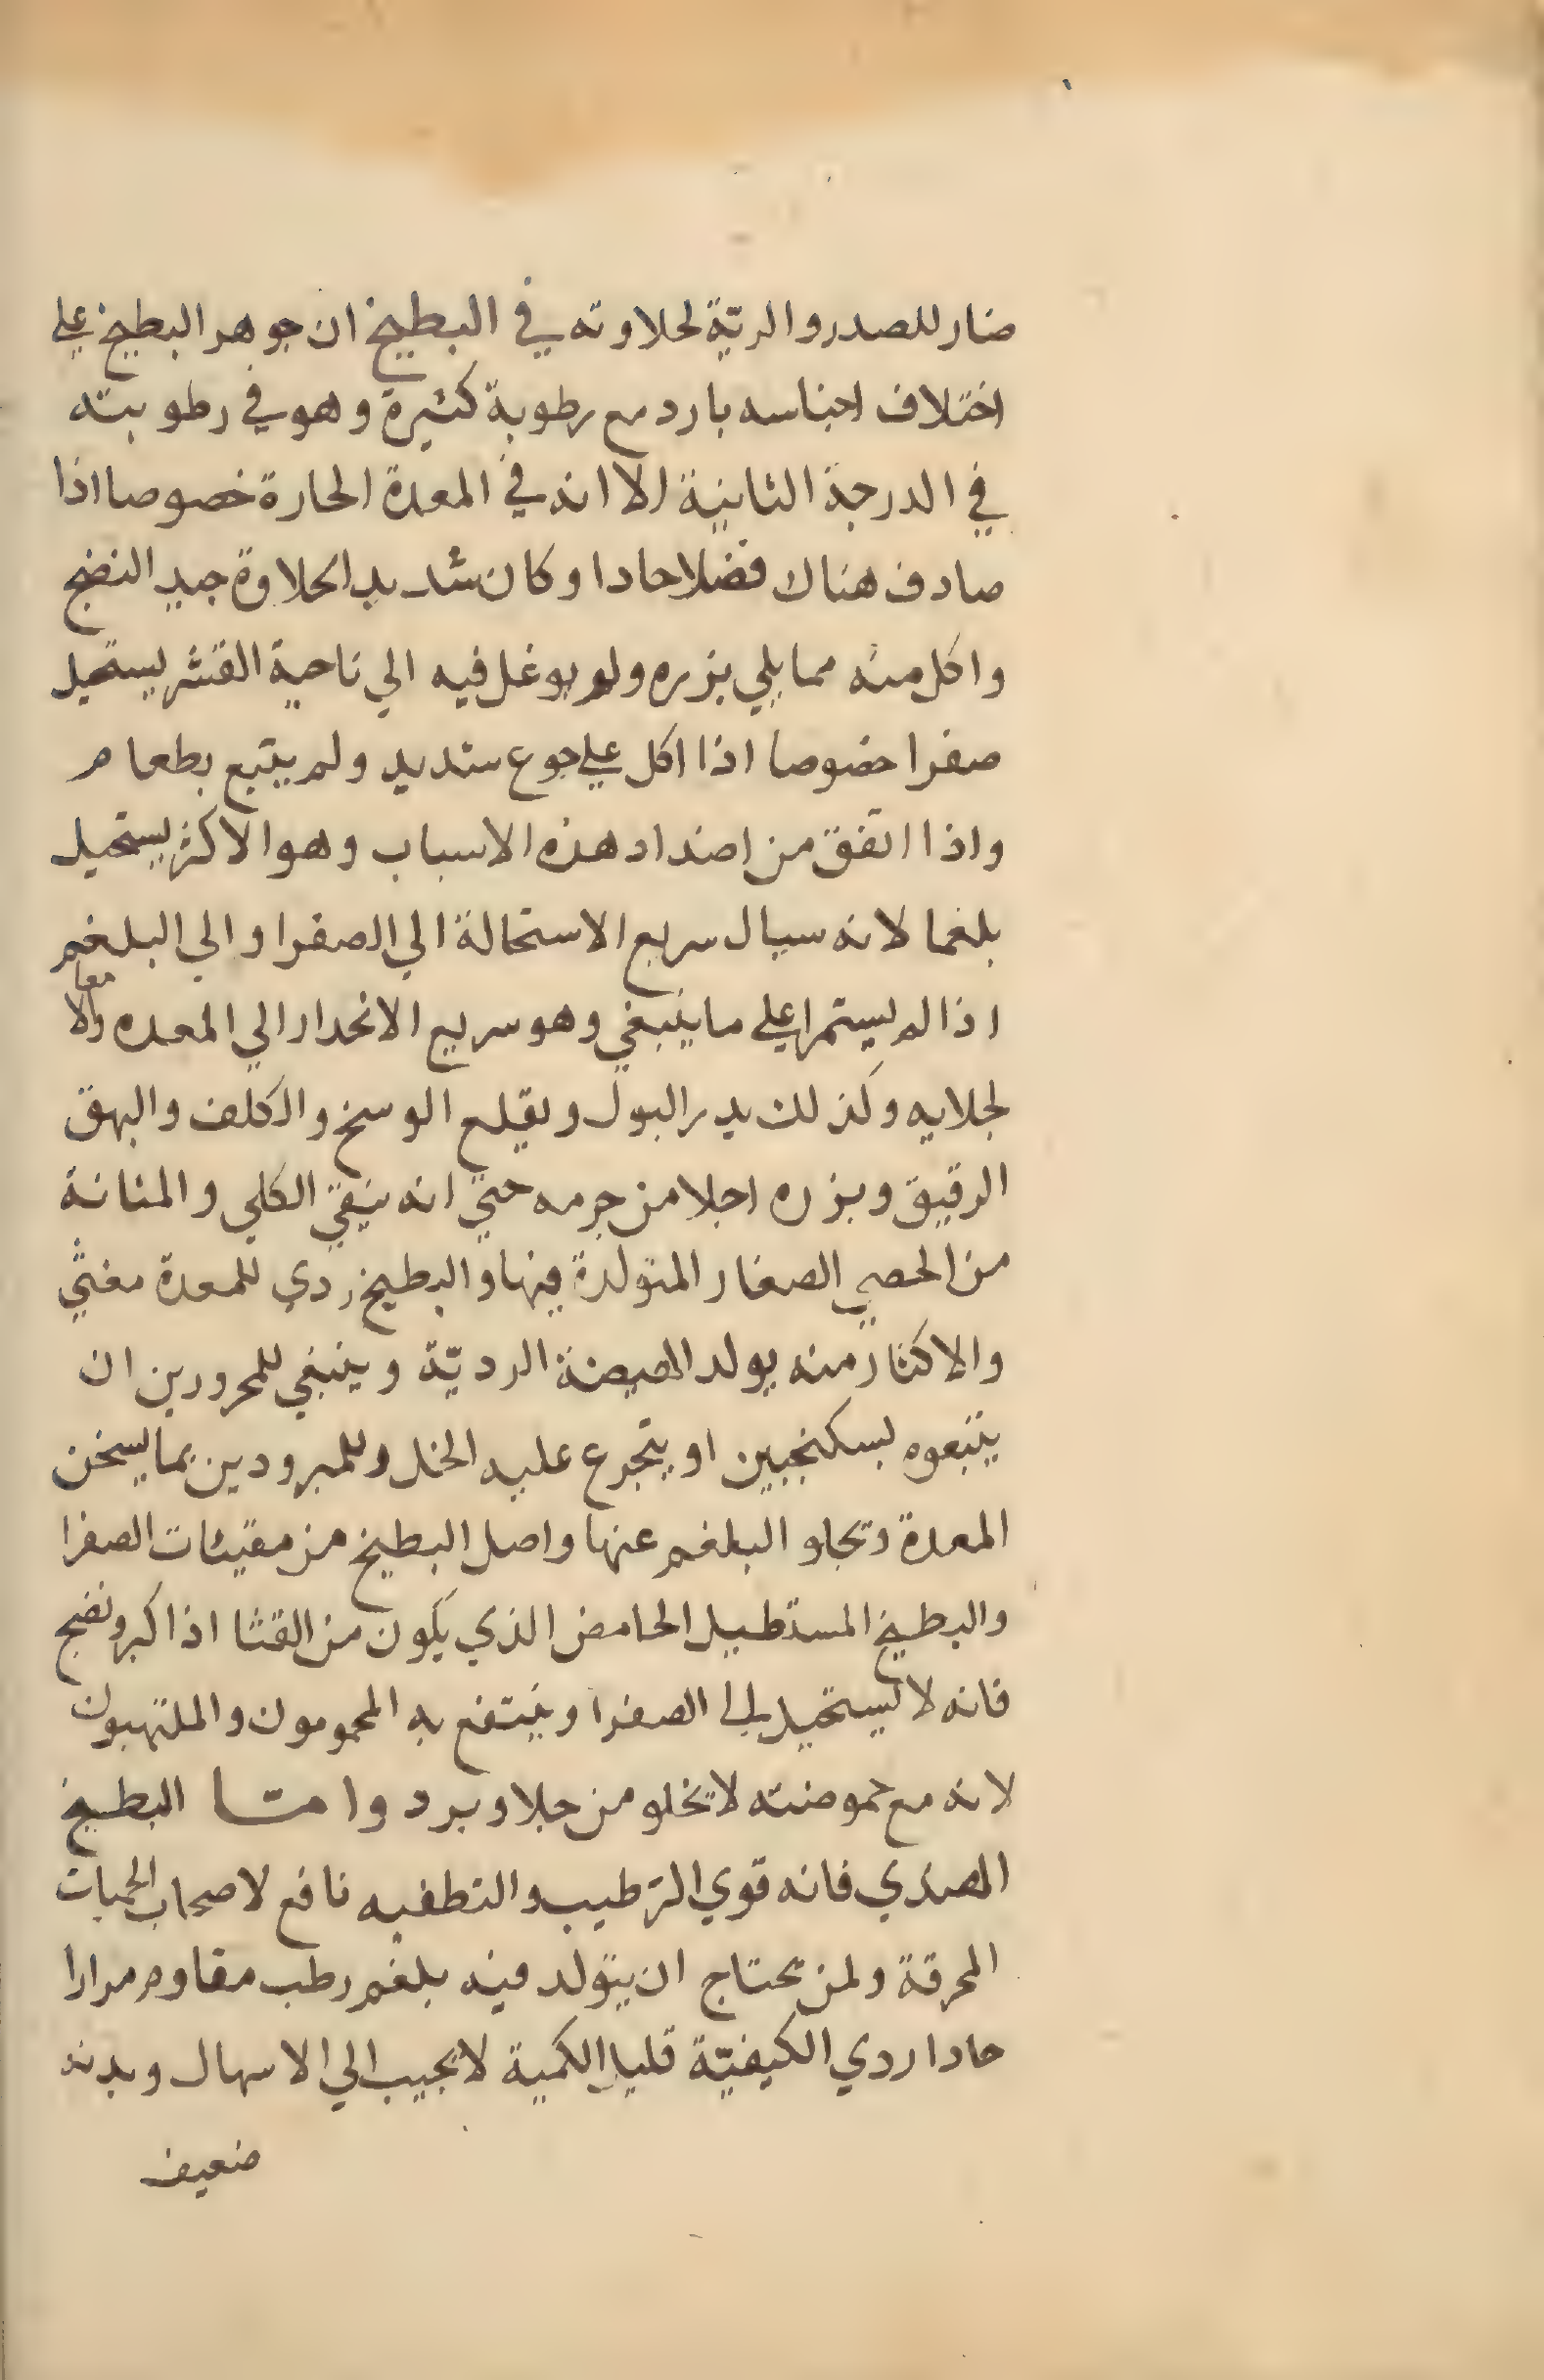 ضار للصدر والريّة لحلاوته في البطيخ ان جوهر البطيخ علي
اختلاف اجناسه بارد مع رطوبة كثيرة وهو في رطوبته
في الدرجة الثانية الا انه في المعدة الحارة خصوصا اذا
صادف هناك فضلا حادا وكان شديد الحلاوة جيد النضج
واكل منه مما يلي بزره ولم يوغل فيه الي ناحية القشر يستحيل
صفرا خصوصا اذا اكل علي جوع شديد ولم يتبع بطعام
واذا اتفق من اضداد هذه الاسباب وهو الاكثر يستحيل
بلغما لانه سيال سريع الاستحالة الي الصفرا والي البلغم
اذا لم يستمرا علي ما ينبغي وهو سريع الانحدار الي المعده والا
معا
لجلايه وكذلك يدر البول ويقلع الوسخ والكلف والبهق
الرقيق وبزره اجلا من جرمه حتي انه ينقي الكلي والمثانة
من الحصي الصغار المتولدة فيها والبطيخ ردي للمعدة مغثي
والاكثار منه يولد الهيضة الرديّة وينبغي للمحرورين ان
يتبعوه بسكنجبين او يتجرع عليه الخل وللمبرودين بما يسخن
المعدة وتجلو البلغم عنها واصل البطيخ من مقيئات الصفرا
والبطيخ المستطيل الحامض الذي يكون من القثا اذا كبر ونضج
فانه لا يستحيل الي الصفرا وينتفع به المحمومون والملتهبون
لانه مع حموضته لا يخلو من جلا وبرد وامّا البطيخ
الهندي فانه قوي الترطيب والتطفيه نافع لاصحاب الحميات
المحرقة ولمن يحتاج ان يتولد فيه بلغم رطب مقاوم مرارا
حادا ردي الكيفيّة قليل الكمية لا يجيب الي الاسهال وبدنه
ضعيف